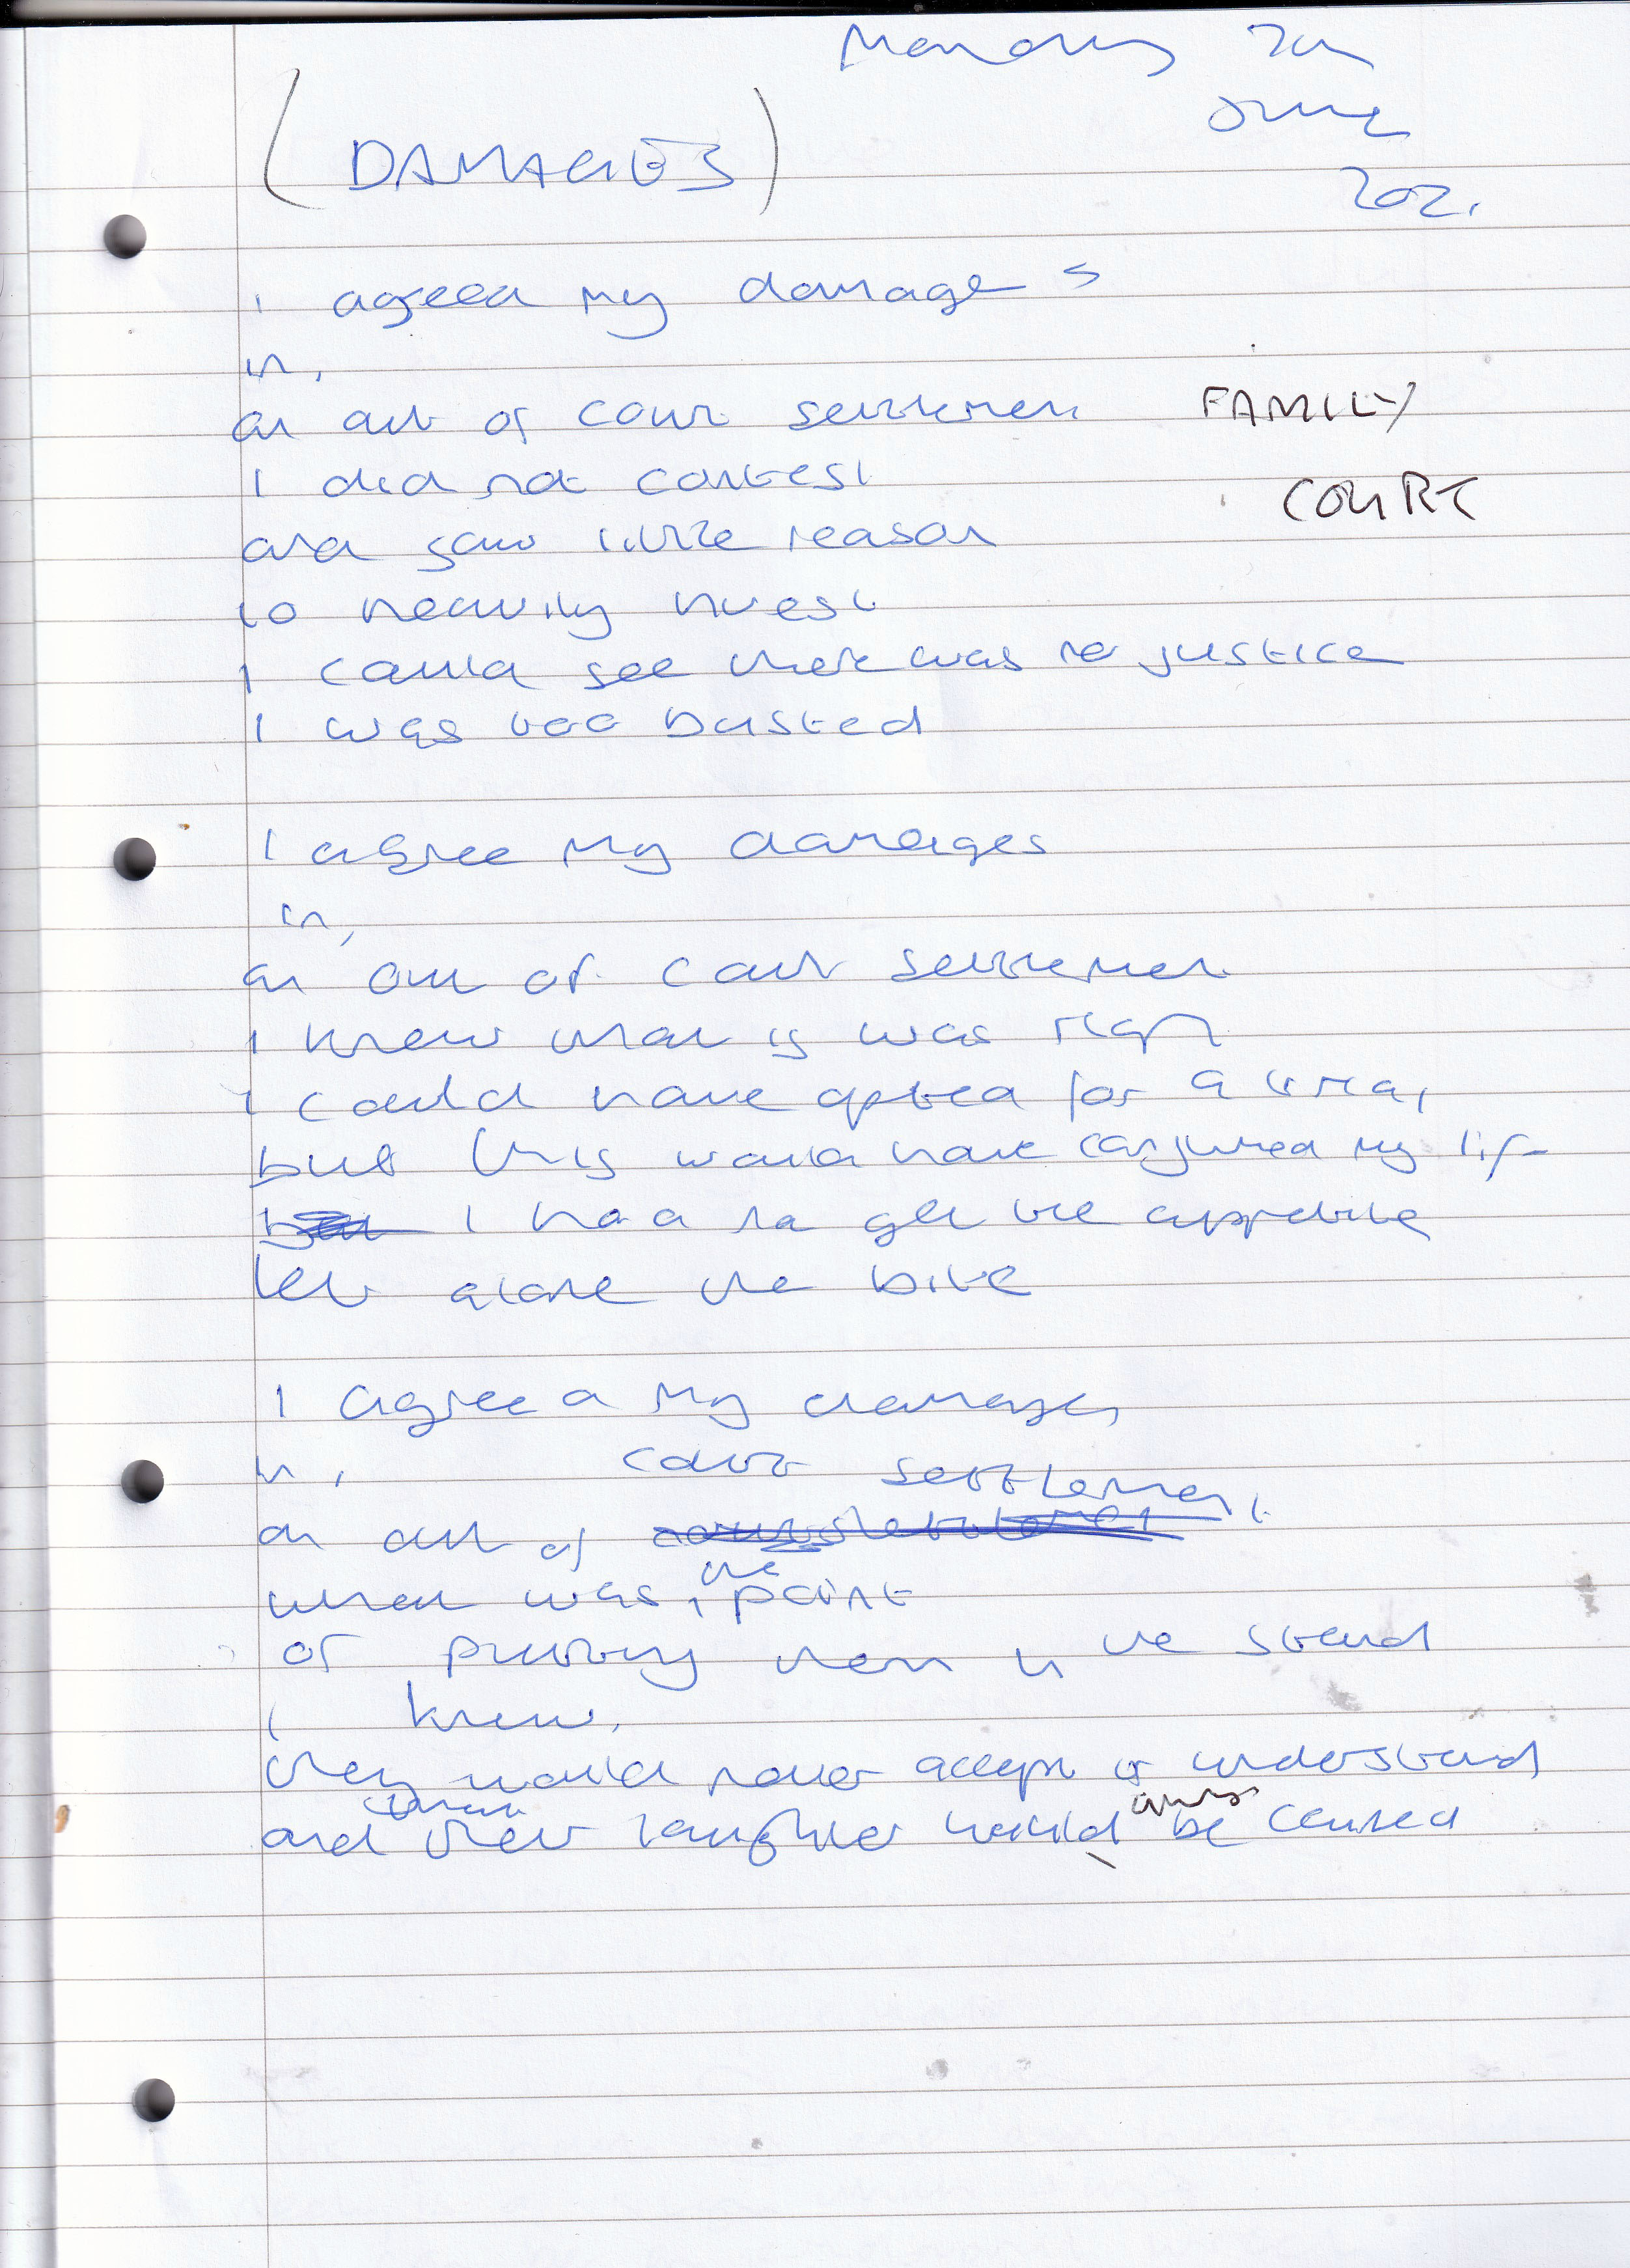 Monday 7th
June
2021
(DAMAGES)
I agreed my damages
in,
an out of court settlement
FAMILY
I did not contest
COURT
and saw little reason
to heavily invest
I could see there was no justice
I was too busted
I agree my damages
in,
an out of court settlement
I knew what is was right
I could have opted for a trial
but this would have my life
I had no the appetite
let alone the bite
I agreed my damages
in,
court settlement
an out of
the
what was point
of proving them in the stand
I knew,
they would never accept or understand
and their laughter would be